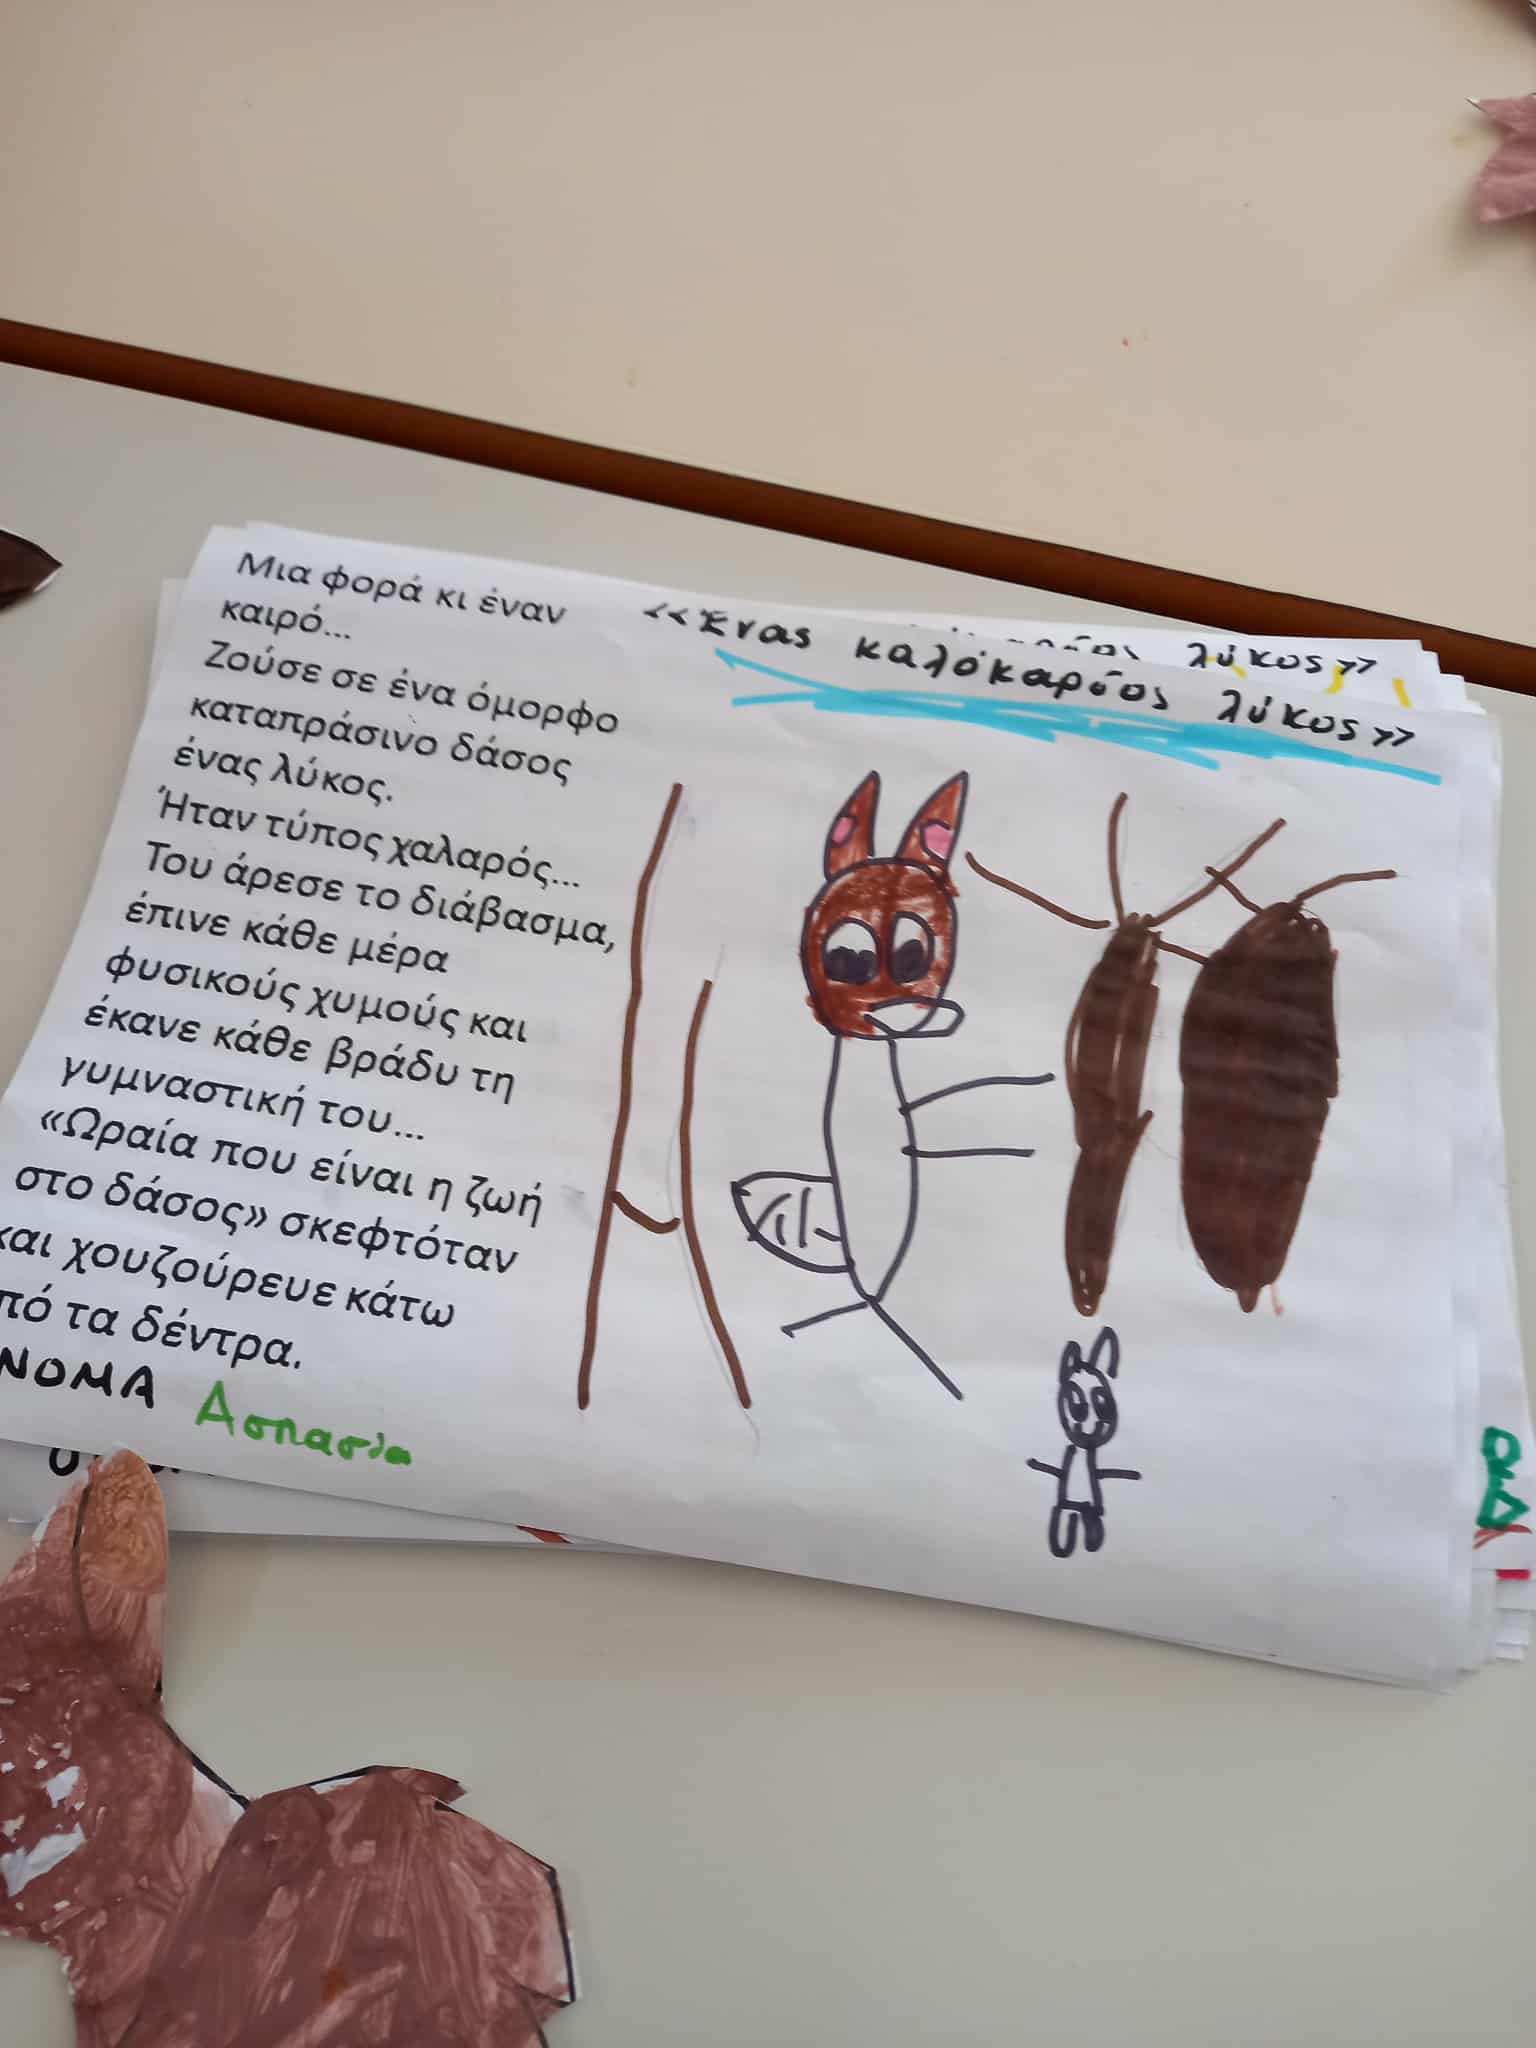 Μια φορά κι έναν
καιρό...
Ζούσε σε ένα όμορφο
καταπράσινο δάσος
ένας λύκος.
Ήταν τύπος χαλαρός...
Του άρεσε το διάβασμα,
έπινε κάθε μέρα
φυσικούς χυμούς και
έκανε κάθε βράδυ τη
γυμναστική του...
«Ωραία που είναι η ζωή
στο δάσος» σκεφτόταν
και χουζούρευε κάτω
πό τα δέντρα.
ΝΟΜΑ Ασπασία
<<Ένας καλόκαρδος λύκος>>
λύκος>>